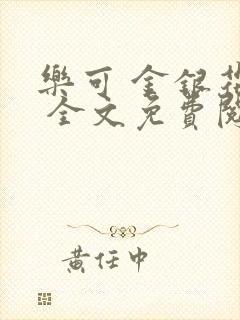 樂可 金銀花
全文免費閱
黃任中